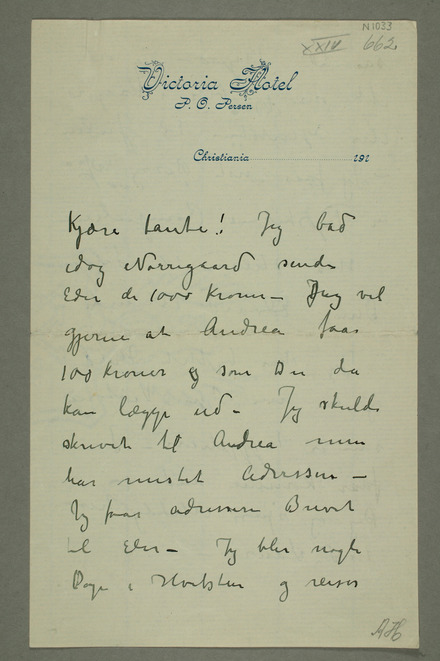 N1033
XXIV 662
Victoria Hotel
P. O. Persen
Christiania 191
Kjære tante! Jeg bad
idag Nørregaard sende
Eder de 1000 Kroner – Jeg vil
gjerne at Andrea faar
100 Kroner og som Du da
kan lægge ud – Jeg skulde
skrevet til Andrea men
har mistet Adressen –
Jeg faar adressere Brevet
til Eder – Jeg blir nogle
Dage i Hvitsten og reiser